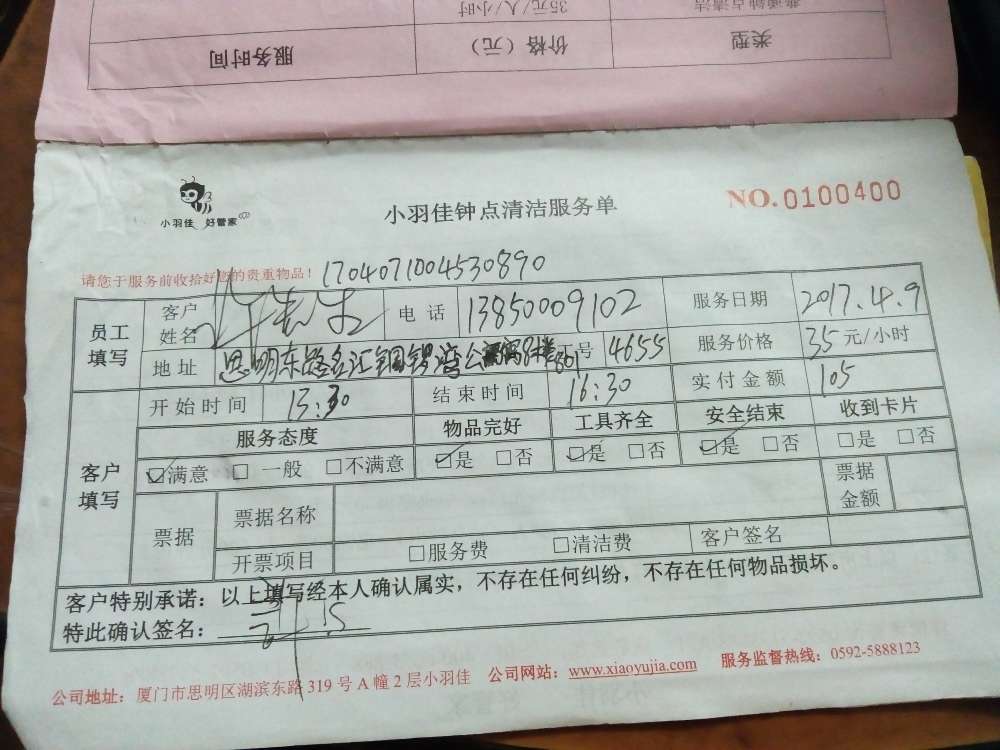 普通钟点清洁 35元/人/小时
类型 价格（元） 服务时间
小羽佳 好管家
小羽佳钟点清洁服务单
NO.0100400
请您于服务前收拾好您的贵重物品！ 1704071004530890
员工填写 客户姓名 电 话 13850009102 服务日期 2017.4.9
地 址 思明东路 汇 公 801 工号 4655 服务价格 35 元/小时
客户填写 开始时间 13:30 结束时间 16:30 实付金额 105
服务态度 物品完好 工具齐全 安全结束 收到卡片
☑满意 □ 一般 □不满意 ☑是 □否 ☑是 □否 ☑是 □否 □是 □否
票据 票据名称 票据金额
开票项目 □服务费 □清洁费 客户签名
客户特别承诺：以上填写经本人确认属实，不存在任何纠纷，不存在任何物品损坏。
特此确认签名：
公司地址：厦门市思明区湖滨东路 319 号 A 幢 2 层小羽佳 公司网站：www.xiaoyujia.com 服务监督热线：0592-5888123